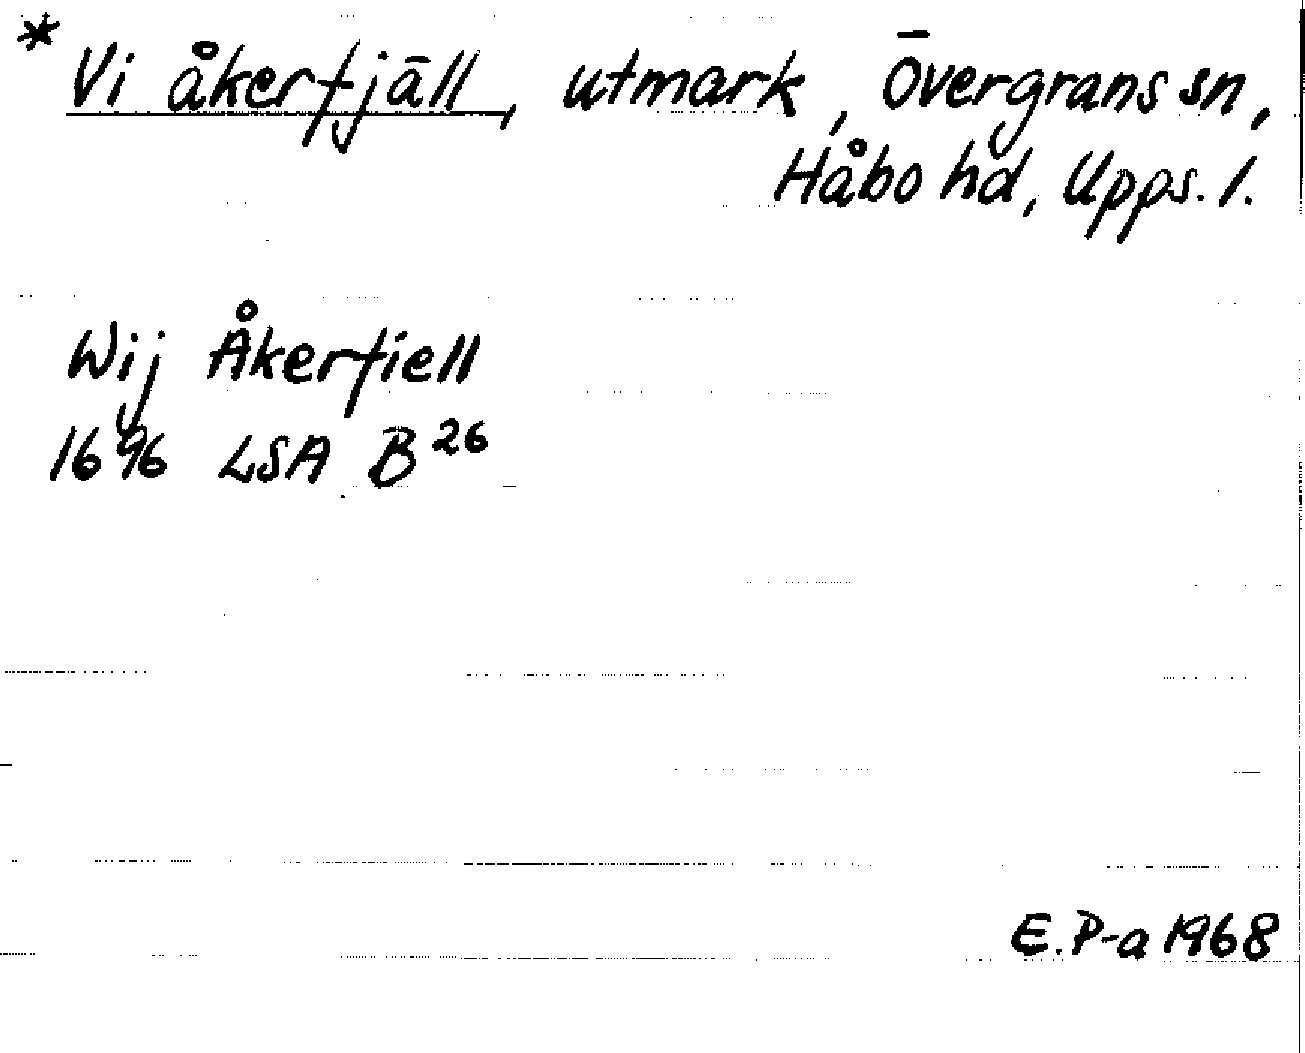 * Vi åkerfjäll, utmark, Övergrans sn,
Håbo hd, Upps. l.
Wij Åkerfiell
1696 LSA B 26
E. P-a 1968